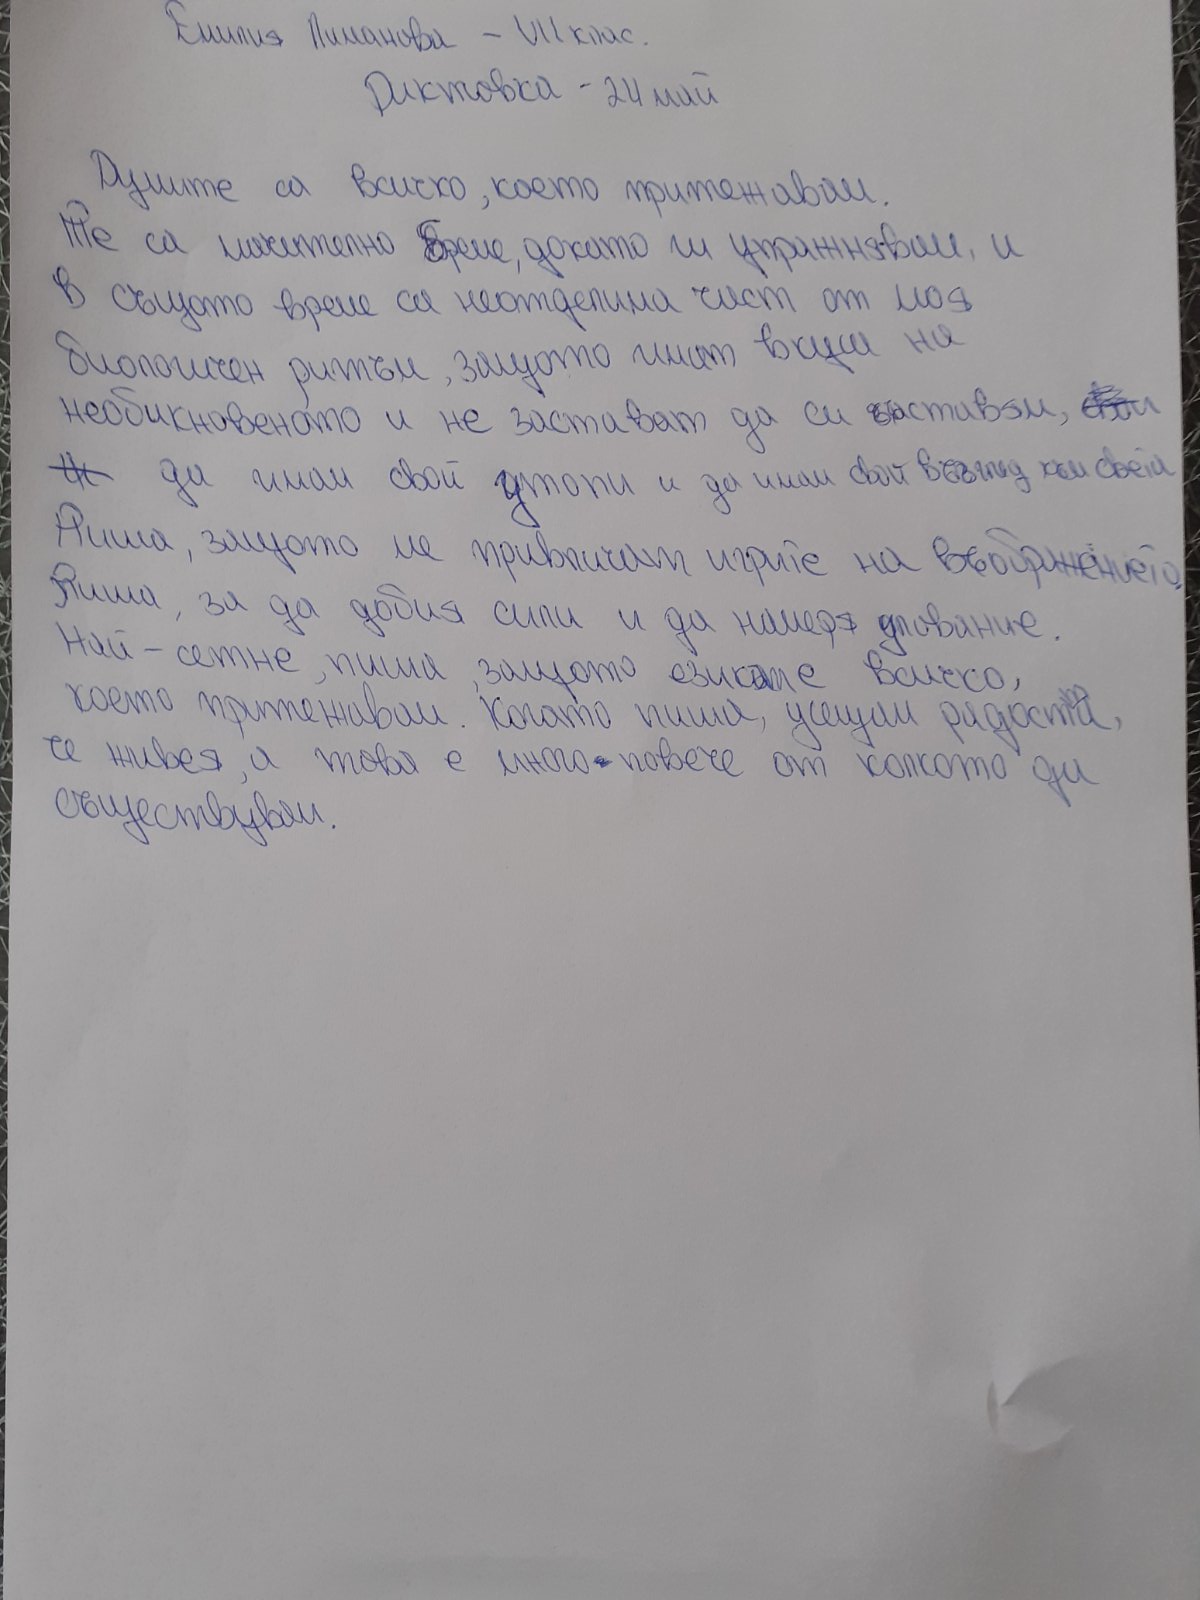 Емилия Лиманова - VII клас.
Диктовка - 24 май
Думите са всичко, което притежавам.
Те са мъчително бреме, докато ги упражнявам, и
в същото време са неотделима част от моя
биологичен ритъм, защото имат вкуса на
необикновеното и не застават да си
да имам свой утопи и да имам свой възглед към света
Пиша, защото ме привличат игрите на въображението.
Пиша, за да добия сили и да намеря упование.
Най-сетне, пиша, защото езикът е всичко,
което притежавам. Когато пиша, усещам радостта,
че живея, а това е много-повече от колкото да
съществувам.